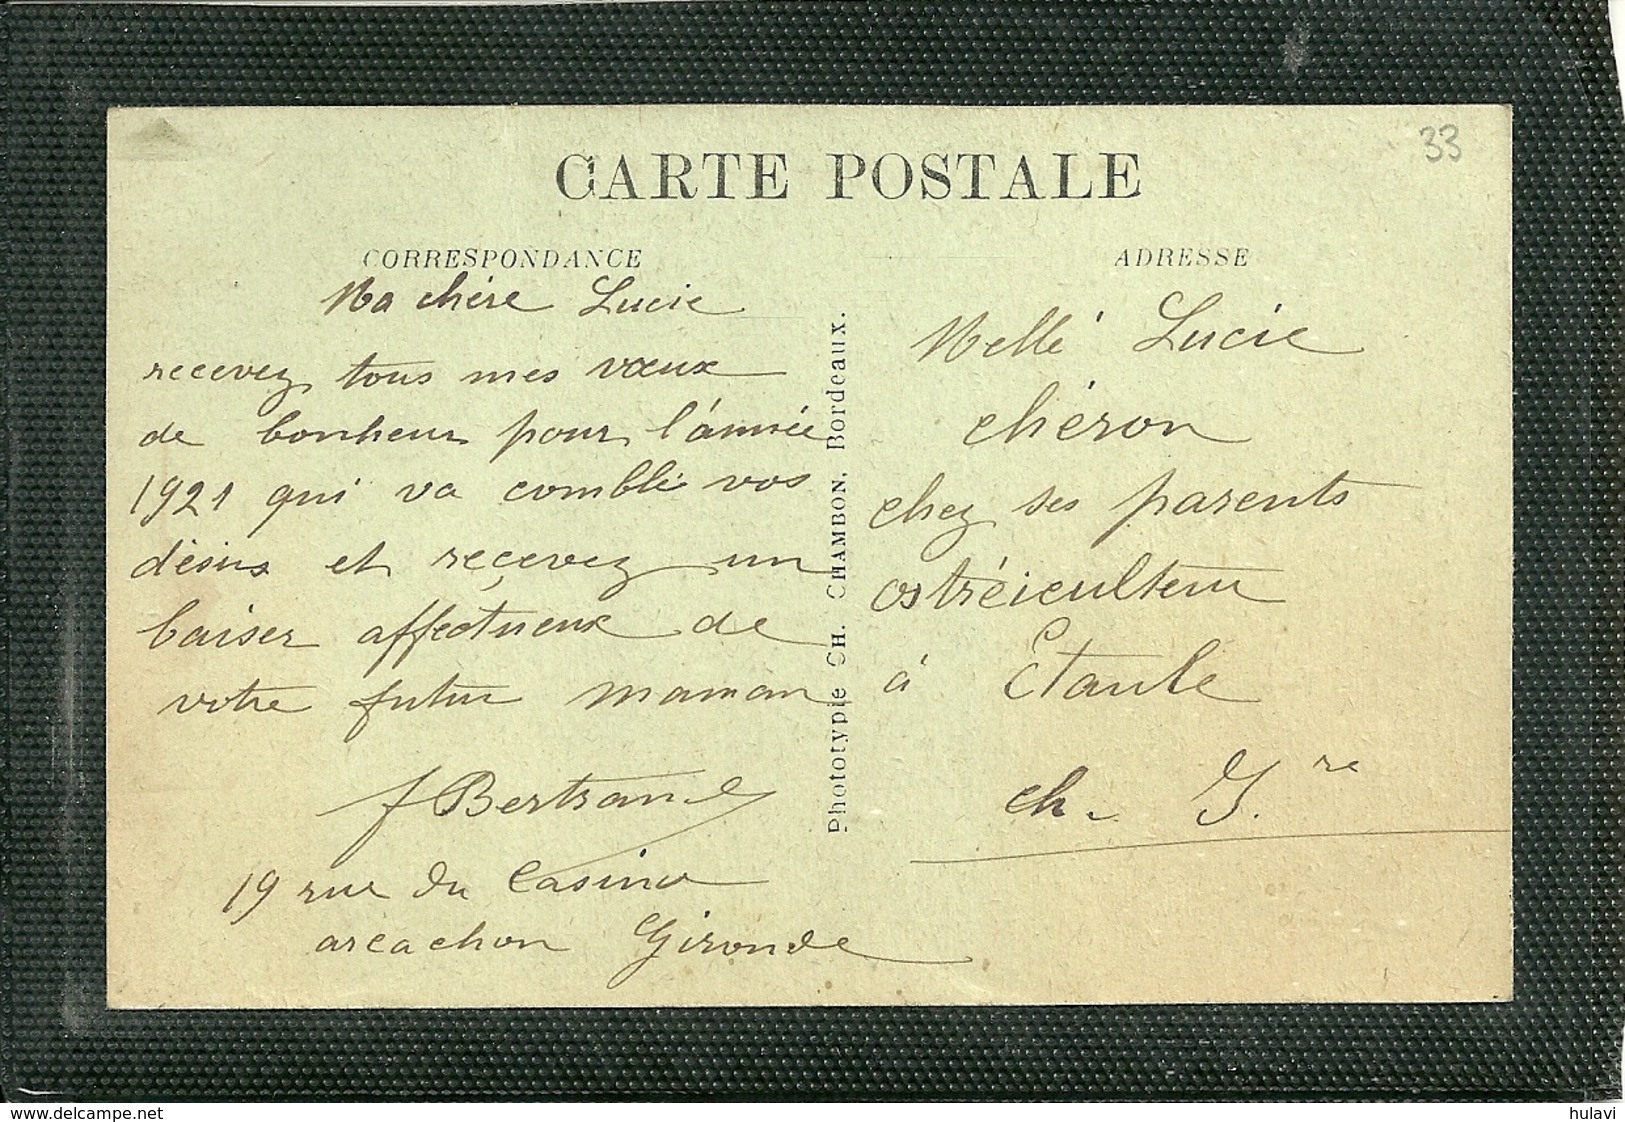 33
CARTE POSTALE
CORRESPONDANCE
Ma chère Lucie
recevez tous mes vœux
de bonheur pour l'année
1921 qui va comblé vos
désirs et reçevez un
baiser affectueux de
votre futur maman
J Bertrand
19 rue du Casino
arcachon Gironde
Phototypie CH. CHAMBON, Bordeaux.
ADRESSE
Mellé Lucie
chéron
chez ses parents
ostréiculteur
à Etaule
ch. I.re
www.delcampe.net
hulavi